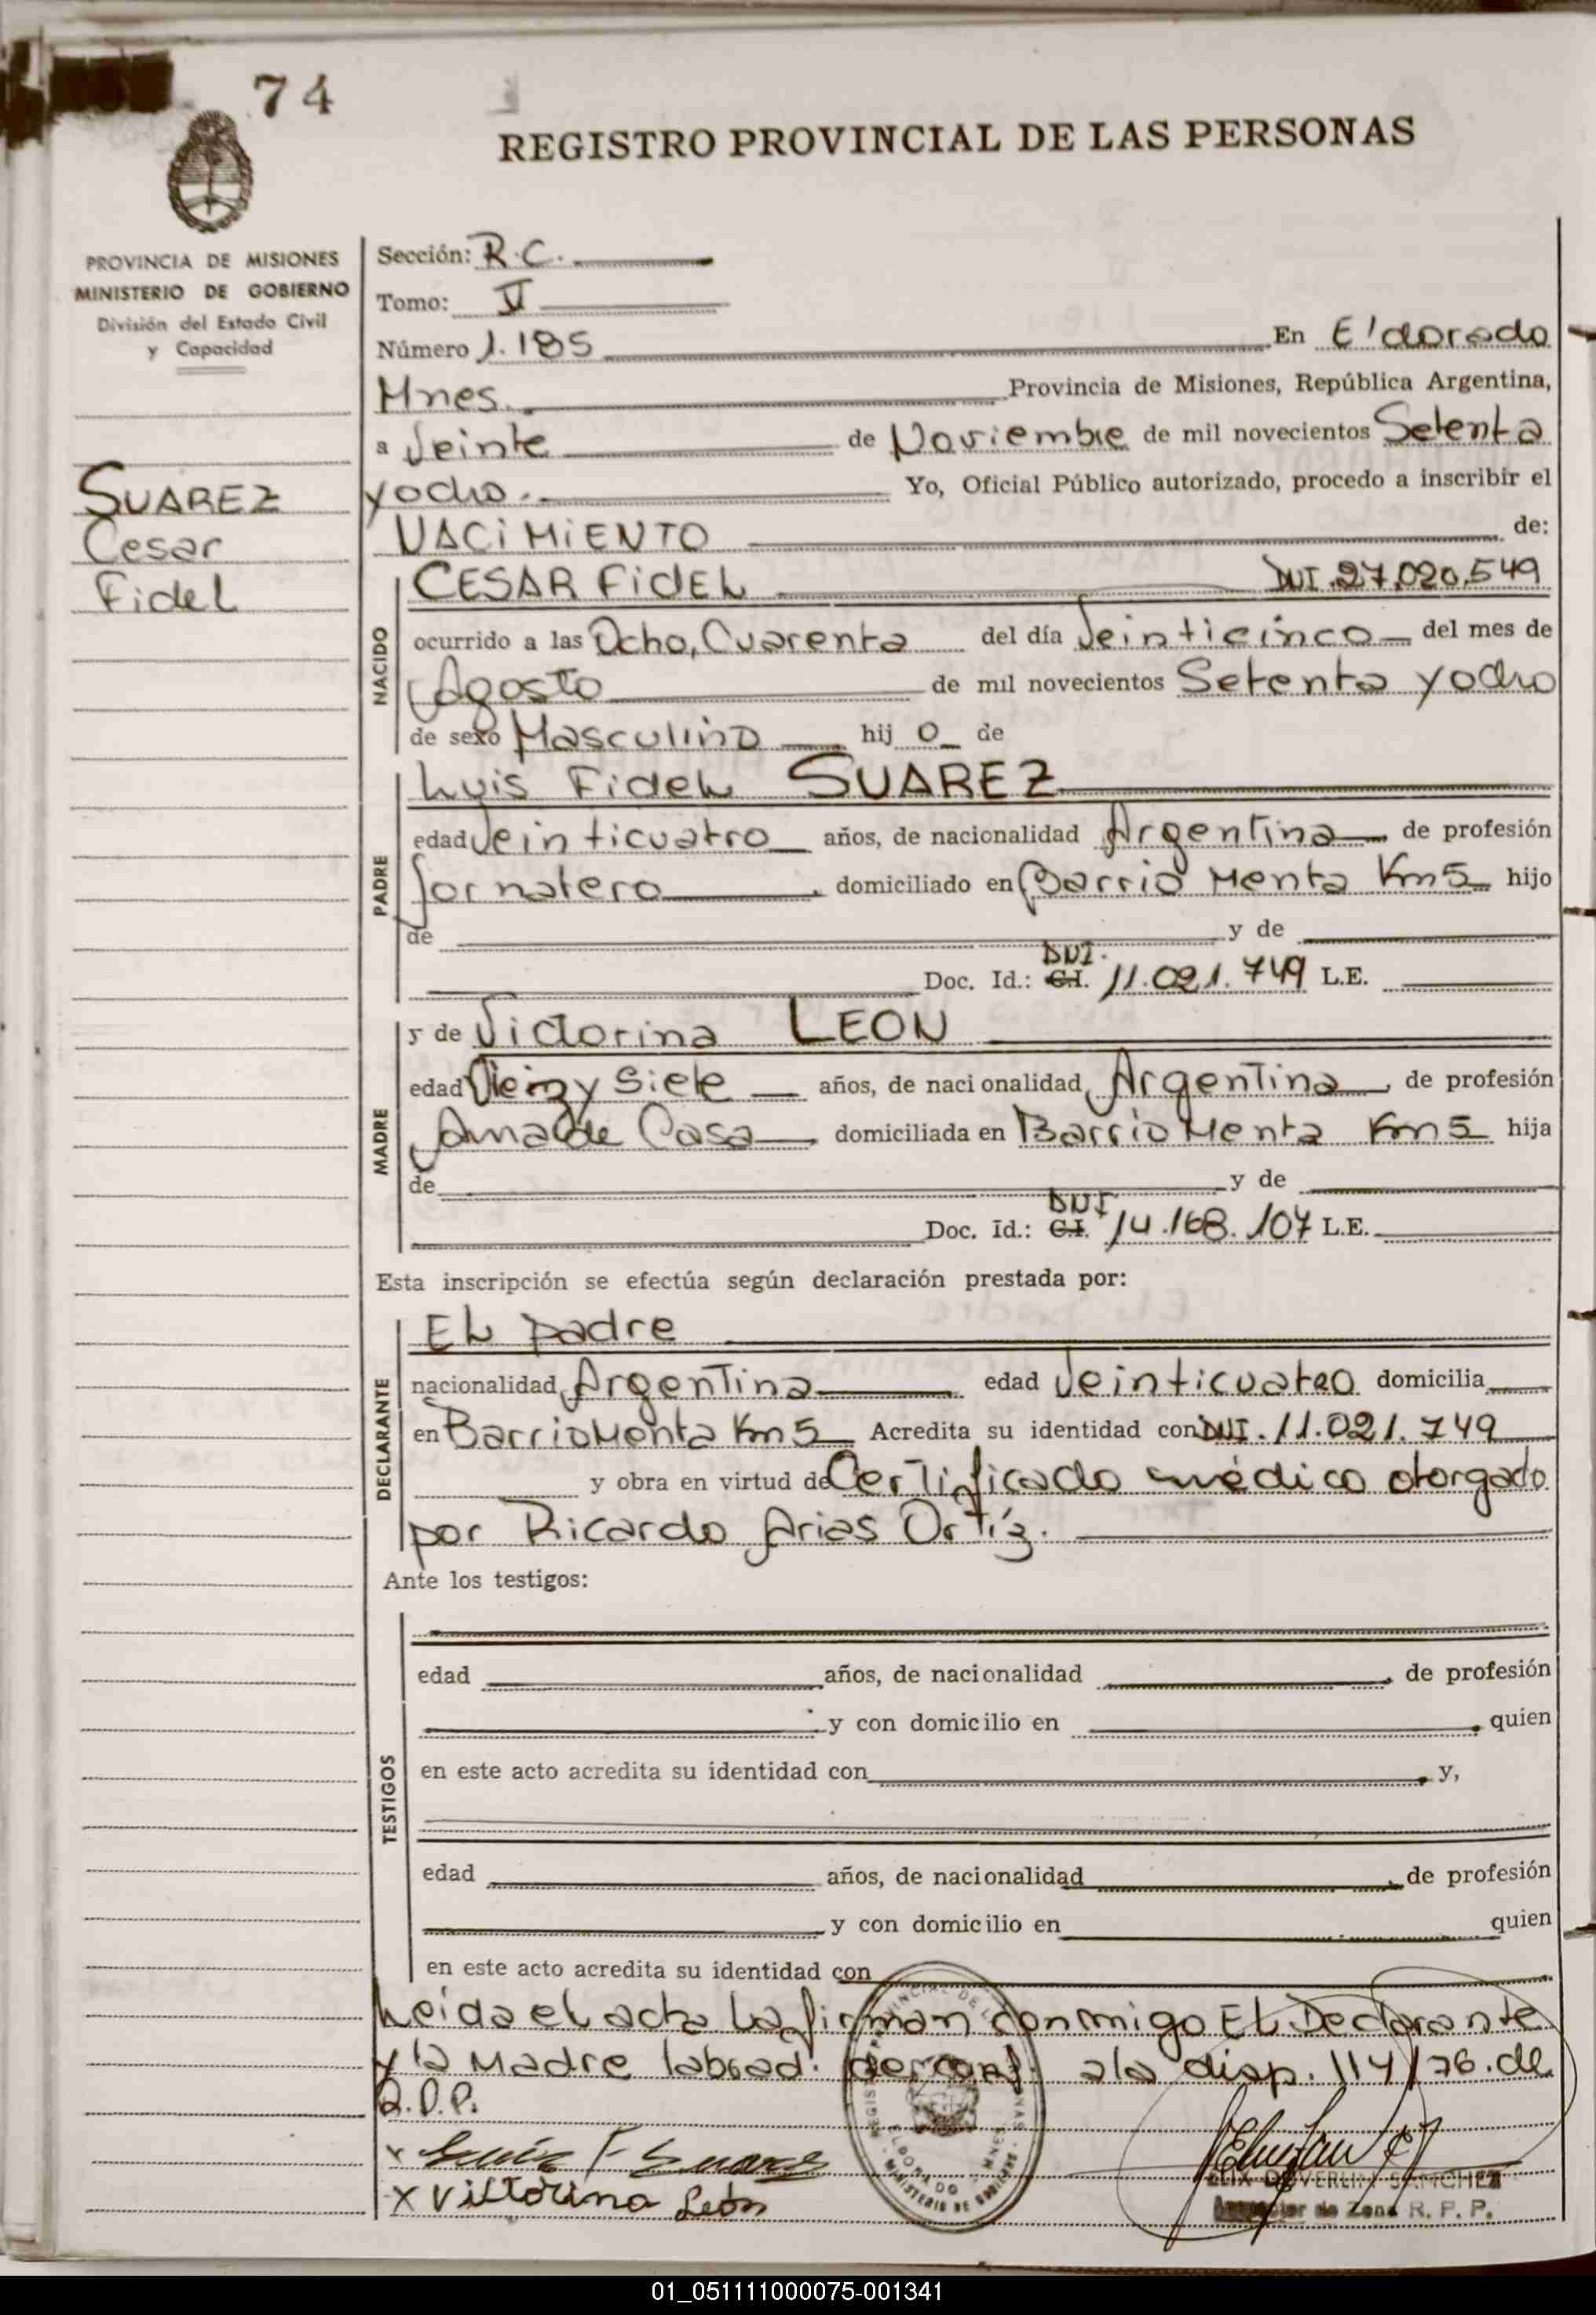 74
REGISTRO PROVINCIAL DE LAS PERSONAS
PROVINCIA DE MISIONES
MINISTERIO DE GOBIERNO
División del Estado Civil
y Capacidad
SUAREZ
Cesar
Fidel
Sección: R.C.
Tomo: V
Número 1.185 En E'dorado
Mnes. Provincia de Misiones, República Argentina,
a Veinte de Noviembre de mil novecientos Setenta
y ocho. Yo, Oficial Público autorizado, procedo a inscribir el
NACIMIENTO de:
NACIDO
CESAR FIDEL DNI.27.020.549
ocurrido a las Ocho, Cuarenta del día Veinticinco del mes de
Agosto de mil novecientos Setenta y ocho
de sexo Masculino hij o de
PADRE
Luis Fidel SUAREZ
edad Veinticuatro años, de nacionalidad Argentina de profesión
Jornalero domiciliado en Barrio Menta Km 5 hijo
de y de
DNI.
Doc. Id.: C.I. 11.021.749 L.E.
MADRE
y de Victorina LEON
edad Diez y Siete años, de nacionalidad Argentina de profesión
Ama de Casa domiciliada en Barrio Menta Km 5 hija
de y de
DNI
Doc. Id.: C.I. 14.168.107 L.E.
Esta inscripción se efectúa según declaración prestada por:
DECLARANTE
EL padre
nacionalidad Argentina edad Veinticuatro domicilia
en Barrio Menta Km 5 Acredita su identidad con DNI. 11.021.749
y obra en virtud de Certificado médico otorgado
por Ricardo Arias Ortíz.
Ante los testigos:
TESTIGOS
edad años, de nacionalidad de profesión
y con domicilio en quien
en este acto acredita su identidad con y,
edad años, de nacionalidad de profesión
y con domicilio en quien
en este acto acredita su identidad con
Leida el acta La firman conmigo EL Declarante
y la Madre labrad. de conf. a la disp. 114/76. de
R.P.P.
x Luis F Suarez
x Vittorina León
ELDORADO - MNES
MINISTERIO DE GOBIERNO
SANCHEZ
de Zona R. P. P.
01_051111000075-001341